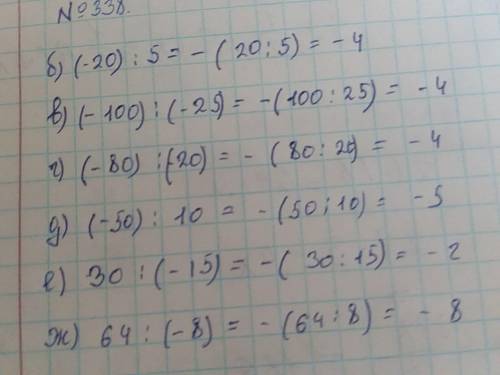 №338.
б) (-20) : 5 = - (20:5) = - 4
в) (- 100) : (-25) = -(100 : 25) = - 4
г) (- 80) : (-20) = - (80 : 20) = - 4
д) (-50) : 10 = - (50 : 10) = - 5
е) 30 : (- 15) = -( 30 : 15) = - 2
ж) 64 : (-8) = - (64 : 8) = - 8